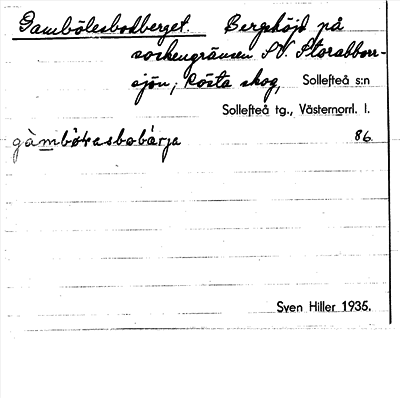 Gambölesbodberget. Bergshöjd på
sockengränsen SV. Storabborr-
sjön, Rösta skog, Sollefteå s:n
Sollefteå tg., Västernorrl. l.
gàmbø̀ɫasbobárja 86.
Sven Hiller 1935.